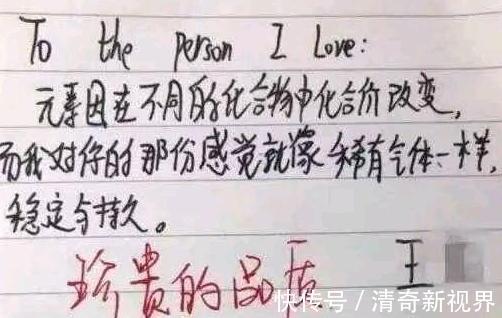 To the person I Love:
元素因在不同的化合物中化合价改变,
而我对你的那份感觉就像稀有气体一样,
稳定与持久。
珍贵的品质 王
快传号/清奇新视界